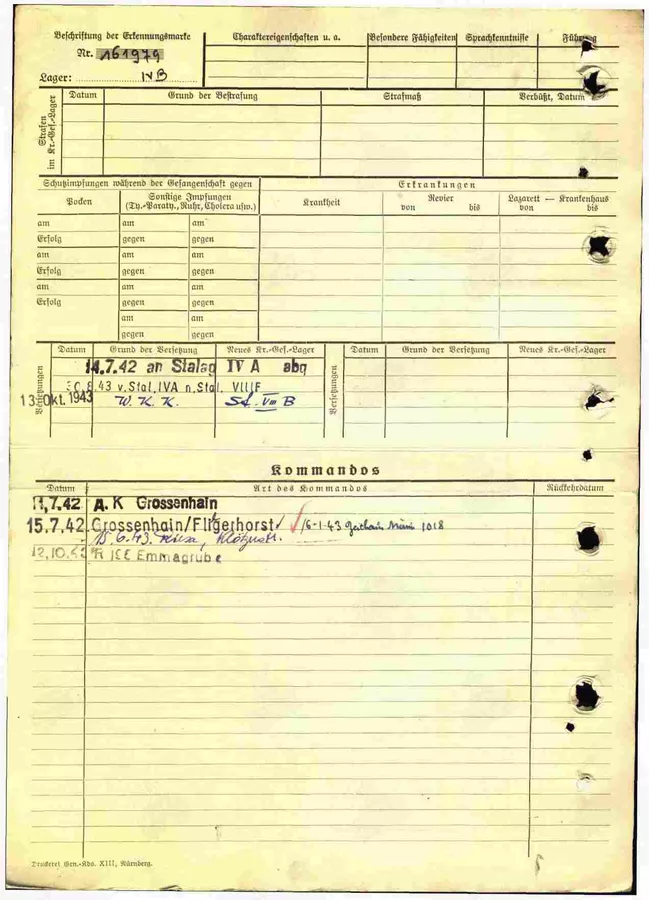 Beschriftung der Erkennungsmarke
Nr. 161979
Lager: IVB
Charaktereigenschaften u. a.
Besondere Fähigkeiten
Sprachkenntnisse
Führung
Strafen im Kr.-Gef.-Lager
Datum
Grund der Bestrafung
Strafmaß
Verbüßt, Datum
Schutzimpfungen während der Gefangenschaft gegen
Erkrankungen
Pocken
Sonstige Impfungen
(Ty.-Paraty., Ruhr, Cholera usw.)
Krankheit
Revier
von bis
Lazarett — Krankenhaus
von bis
am am am
Erfolg gegen gegen
am am am
Erfolg gegen gegen
am am am
Erfolg gegen gegen
am am
gegen gegen
Versetzungen
Datum Grund der Versetzung Neues Kr.-Gef.-Lager
Versetzungen
Datum Grund der Versetzung Neues Kr.-Gef.-Lager
14.7.42 an Stalag IV A abg
.43 v. Stal. IVA n. Stal. VIIIF
13. Okt. 1943 W. K. K. St. VIII B
Kommandos
Datum Art des Kommandos Rückkehrdatum
11.7.42 A. K Grossenhain
15.7.42 Grossenhain/Fliegerhorst 16-1-43 1018
15.6.43.
12.10.4 Emmagrube
Druckerei Gen.-Kdo. XIII, Nürnberg.